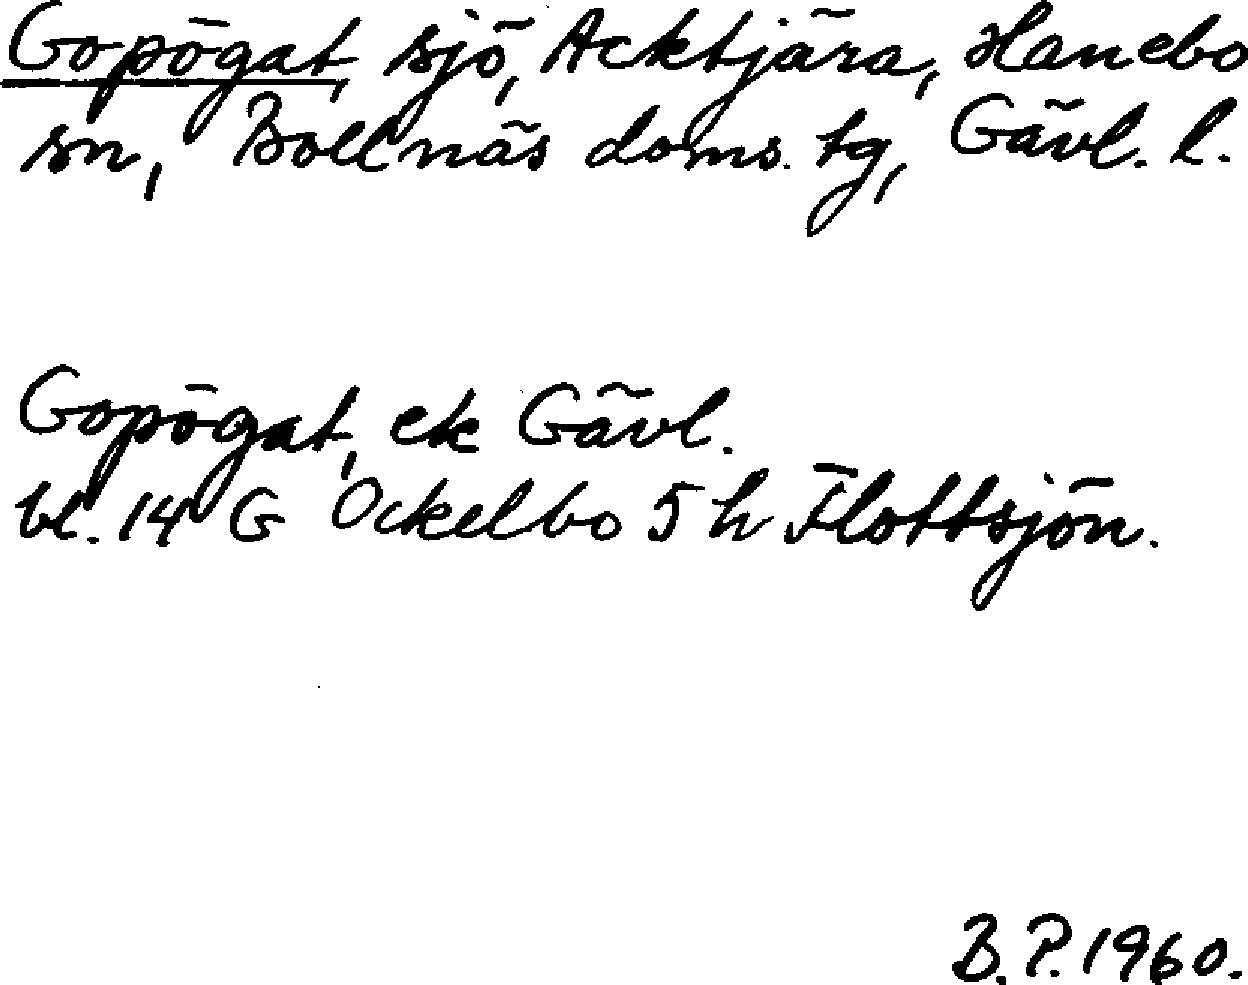 Gopögat, sjö, Acktjära, Hanebo
sn, Bollnäs doms. tg, Gävl. l.
Gopögat, ek Gävl.
bl. 14 G Ockelbo 5 h Flottsjön.
B. P. 1960.